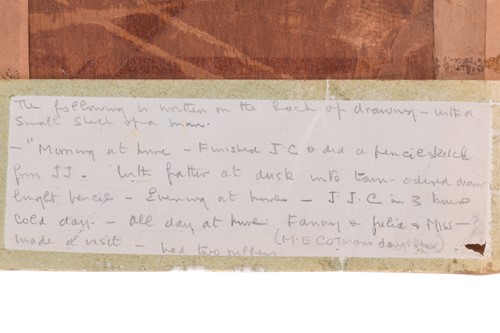 The following is written on the back of drawing - with a
small sketch of a man.
- "Morning at home - Finished J.C & did a pencil sketch
from JJ. With father at dusk into town - ordered draw
bought pencils - Evening at home - J.J.C in 3 hours
cold day. - all day at home Fanny & Julia & Miss - ?
made a visit - had two
(M.E Cotmans daughter)